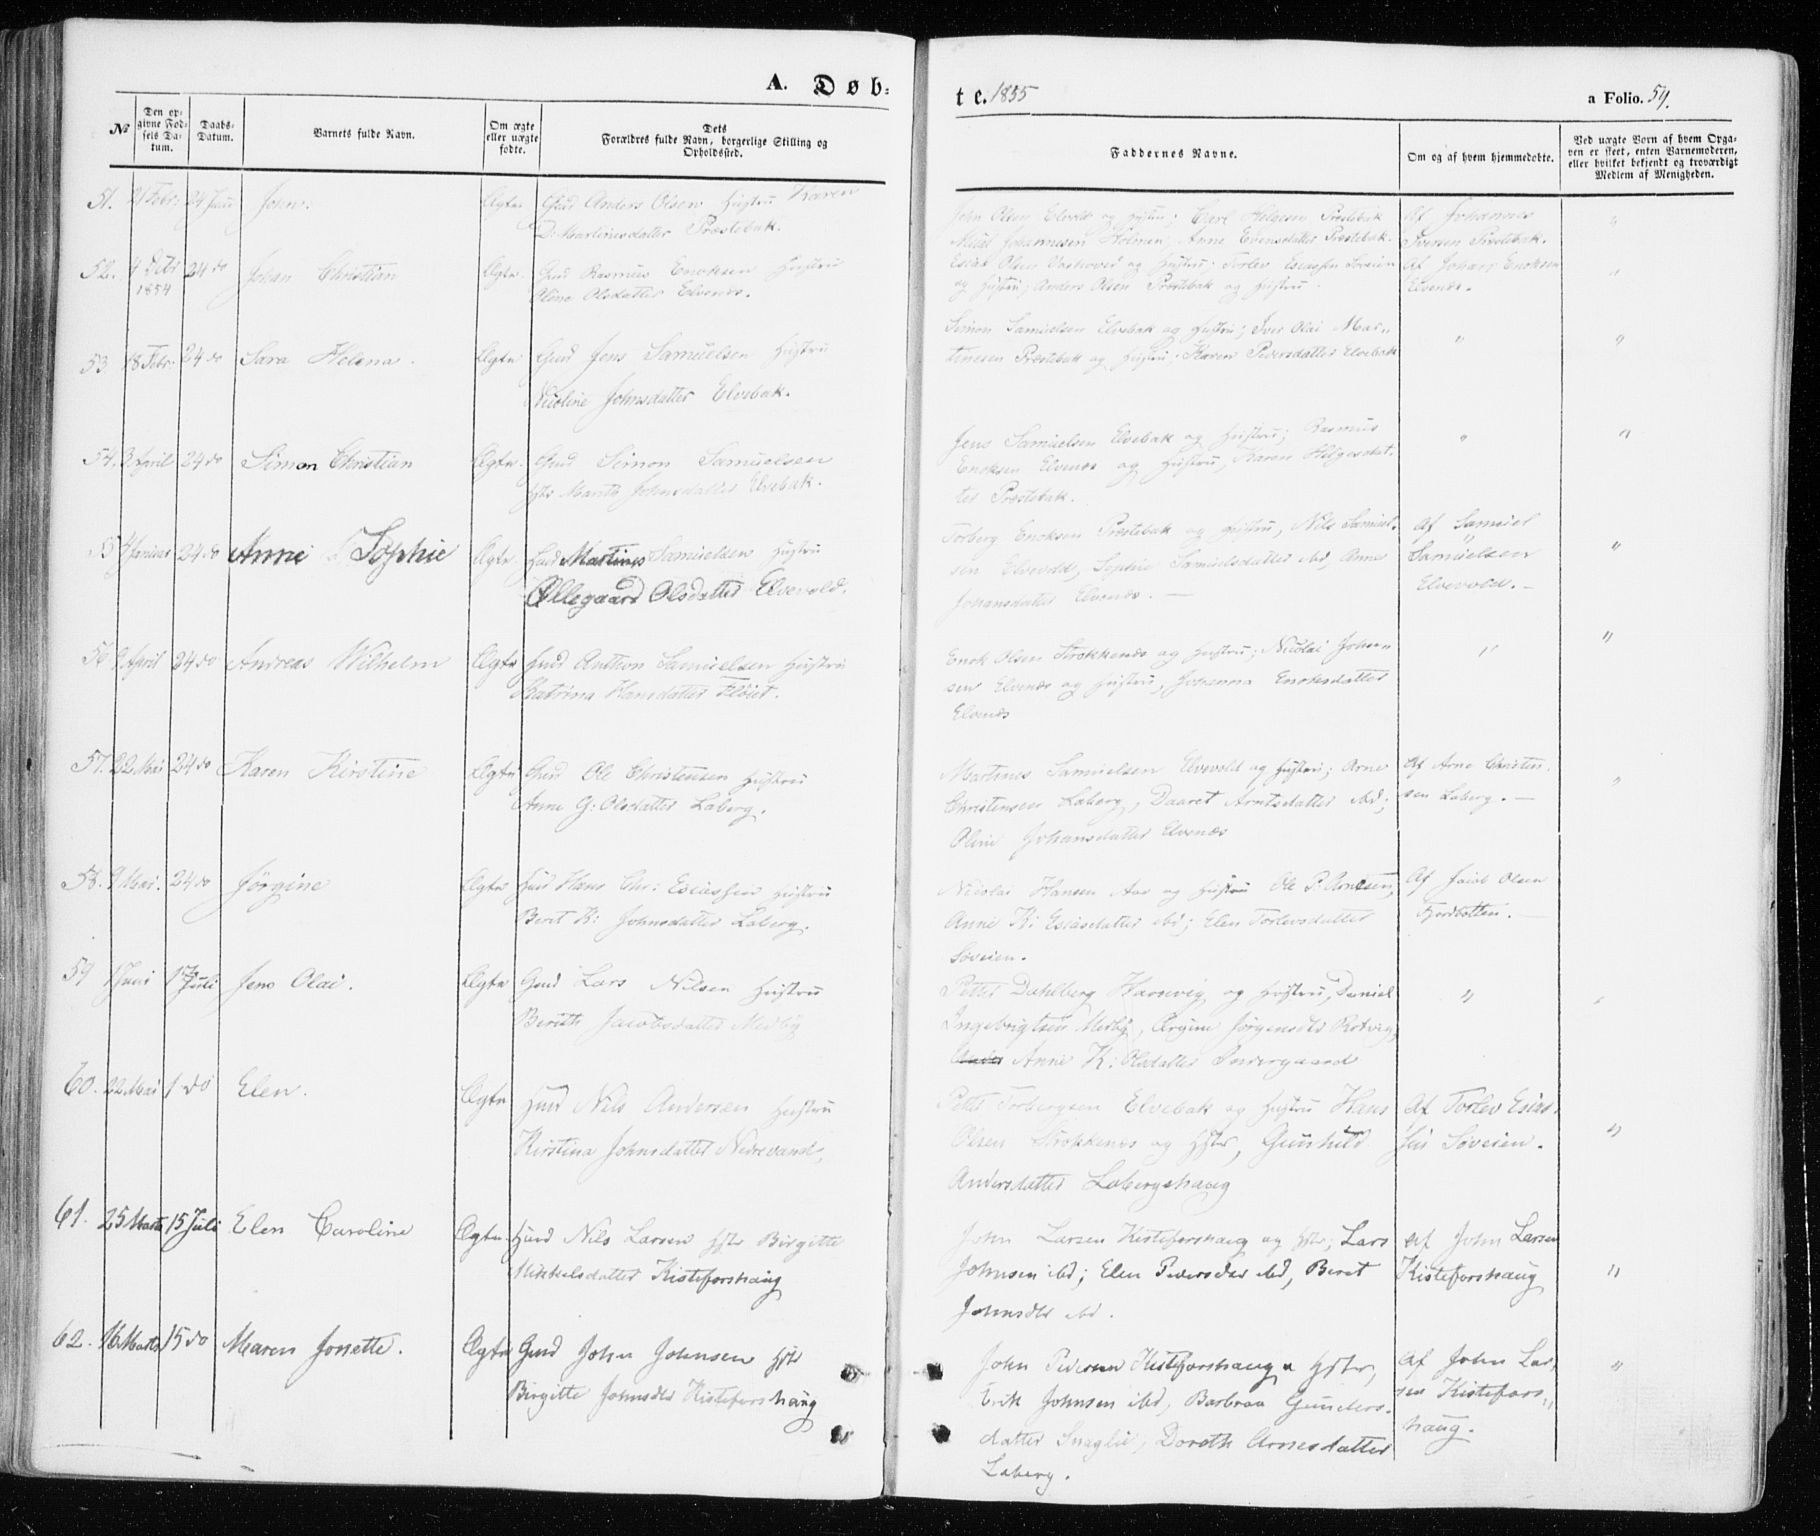 A. Døb-
te. 1855
a Folio. 54.
No
Den opgivne Fødsels Datum.
Daabs-Datum.
Barnets fulde Navn.
Om ægte eller uægte fødte.
Dets
Forældres fulde Navn, borgerlige Stilling og
Opholdssted.
Faddernes Navne.
Om og af hvem hjemmedøbte.
Ved uægte Born af hvem Opga-
ven er skeet, enten Barnemoderen,
eller hvilket bekjendt og troværdigt
Medlem af Menigheden.
51. 21 Febr: 24 Juni John. Ægte Gmd Anders Olsen Hustru Karen
D: Martinesdatter Præstebak.
John Olsen Elvold og Hustru; Carl Helgesen Præstebak
Johannesen Holmen, Anne Evensdatter Præstebak.
Af Johannes
Iversen Præstebak.
"
52. 4 1854 24 do Johan Christian Ægte Gmd Rasmus Enoksen Hustru
Oline Olsdatter Elvenæs.
Esias Olsen og Hustru; Torlev Esiassen Søveien
og Hustru; Anders Olsen Præstebak og Hustru.
Af Johan Enoksen
Elvenæs.
"
53. 18 Febr: 24 do Sara Helena. Ægte Gmd Jens Samuelsen Hustru
Nicoline Johnsdatter Elvebak.
Simon Samuelsen Elvebak og Hustru; Iver Olai Mar-
tinesen Præstebak og Hustru; Karen Pedersdatter Elvebak
"
"
54. 3 April 24 do Simon Christian Ægte. Gmd Simon Samuelsen
Hstr Marith Johnsdatter Elvebak.
Jens Samuelsen Elvebak og Hustru; Rasmus
Enoksen Elvenæs og Hustru, Karen Helgesdat-
ter Præstebak.
"
"
55 4 Januar 24 do Anne Sophie Ægte. Hmd Martines Samuelsen Hustru
Ollegaard Olsdatter Elvevold.
Torberg Enoksen Præstebak og Hustru, Nils Samuel-
sen Elvevold, Sophie Samuelsdatter ibd, Anne
Johansdatter Elvenæs. —
Af Samuel
Samuelsen
Elvevold. —
"
56 9 April 24 do Andreas Wilhelm Ægte Hmd Anthon Samuelsen Hustru
Katrina Hansdatter Fløiet.
Enok Olsen Strokkenæs og Hustru; Nicolai Johan-
sen Elvenæs og Hustru, Johanna Enoksdatter
Elvenæs
"
"
57. 22 Mai 24 do Karen Kirstine Ægte Gmd Ole Christensen Hustru
Anne G: Olsdatter Laberg.
Martines Samuelsen Elvevold og Hustru; Arne
Christensen Laberg, Daaret Arntsdatter ibd;
Oline Johansdatter Elvenæs
Af Arne Christen-
sen Laberg. —
"
58. 9 Mai. 24 do Jørgine Ægte Hmd Hans Chr: Esiassen Hustru
Beret K: Johnsdatter Laberg.
Nicolai Hansen Aae og Hustru Ole P. Arnesen,
Anne K: Esiasdatter ibd; Elen Torlevsdatter
Søveien.
Af Jacob Olsen
Fjordbotten. —
59 1 Juni 1 Juli Jens Olai. Ægte Gmd Lars Nilsen Hustru
Berith Jacobsdatter Medby
Petter Dahlberg Havnevig og Hustru, Daniel
Ingebrigtsen Medby, Jørgensdtr Rotvig,
Anne K: Olsdatter Indergaard
"
"
60. 22 Mai 1 do Elen. Ægte Hmd Nils Andersen Hustru
Kirstina Johnsdatter Nedrevand,
Petter Torbergsen Elvebak og Hustru Hans
Olsen Strokkenæs og Hstr, Gunhild
Andersdatter Laberghaug
Af Torlev Esias-
sen Søveien.
"
61. 25 Marts 15 Juli Elen Caroline Ægte. Hmd Nils Larsen Hstr Birgitte
Mikkelsdatter Kisteforshaug
John Larsen Kisteforshaug og Hstr; Lars
Johnsen ibd; Elen Pedersdtr ibd, Beret
Johnsdtr ibd.
Af John Larsen
Kisteforshaug
"
62. 16 Marts 15 do Maren Jonette. Ægte Gmd John Johnsen Hstr
Birgitte Johnsdtr Kisteforshaug
John Pedersen Kisteforshaug & Hstr,
Erik Johnsen ibd, Barbraa Gunders-
datter Snaglie, Doroth Arnesdatter
Laberg.
Af John Lar-
sen Kistefors-
haug.
"